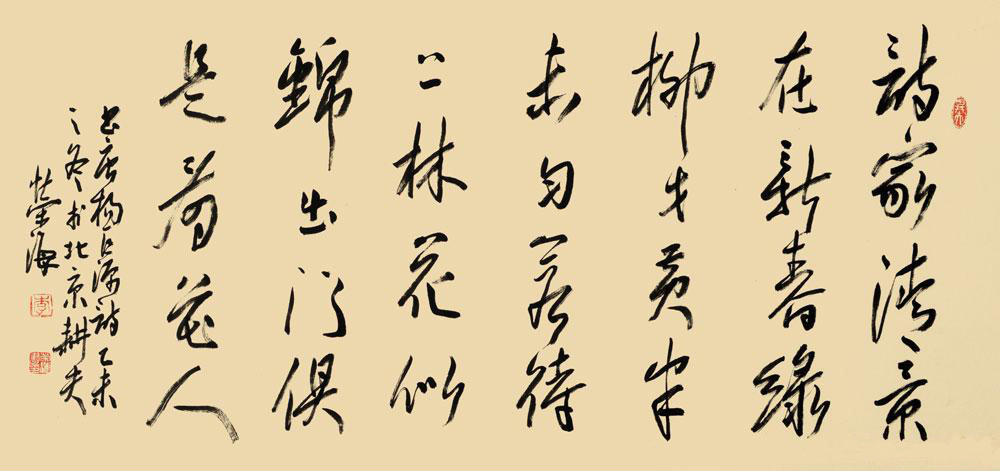 詩家清景
在新春綠
柳才黄半
未匀若待
上林花似
錦出门俱
是看花人
书唐杨巨源詩乙未
之冬於北京耕夫
荣海